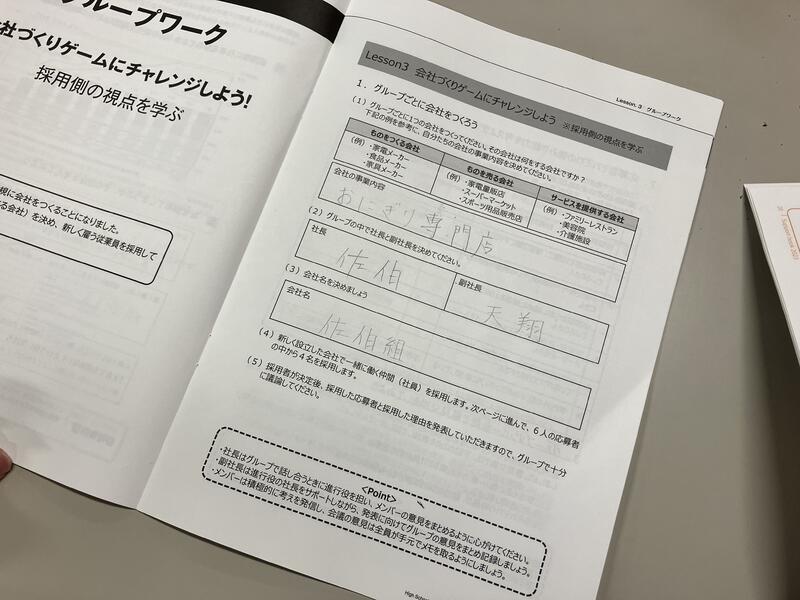 グループワーク
会社づくりゲームにチャレンジしよう!
採用側の視点を学ぶ
規に会社をつくることになりました。
る会社)を決め、新しく雇う従業員を採用して
Lesson. 3 グループワーク
Lesson3 会社づくりゲームにチャレンジしよう ※採用側の視点を学ぶ
1. グループごとに会社をつくろう
(1)グループごとに1つの会社をつくってください。その会社は何をする会社ですか?
下記の例を参考に、自分たちの会社の事業内容を決めてください。
ものをつくる会社 ものを売る会社 サービスを提供する会社
(例)・家電メーカー
・食品メーカー
・家具メーカー
(例)・家電量販店
・スーパーマーケット
・スポーツ用品販売店
(例)・ファミリーレストラン
・美容院
・介護施設
会社の事業内容
おにぎり専門店
(2)グループの中で社長と副社長を決めてください。
社長
佐伯
副社長
天翔
(3)会社名を決めましょう
会社名
佐伯組
(4)新しく設立した会社で一緒に働く仲間(社員)を採用します。次ページに進んで、6人の応募者
の中から4名を採用します。
(5)採用者が決定後、採用した応募者と採用した理由を発表していただきますので、グループで十分
に議論してください。
<Point>
・社長はグループで話し合うときに進行役を担い、メンバーの意見をまとめるように心がけてください。
・副社長は進行役の社長をサポートしながら、発表に向けてグループの意見をまとめ記録しましょう。
・メンバーは積極的に考えを発信し、会議の意見は全員が手元でメモを取るようにしましょう。